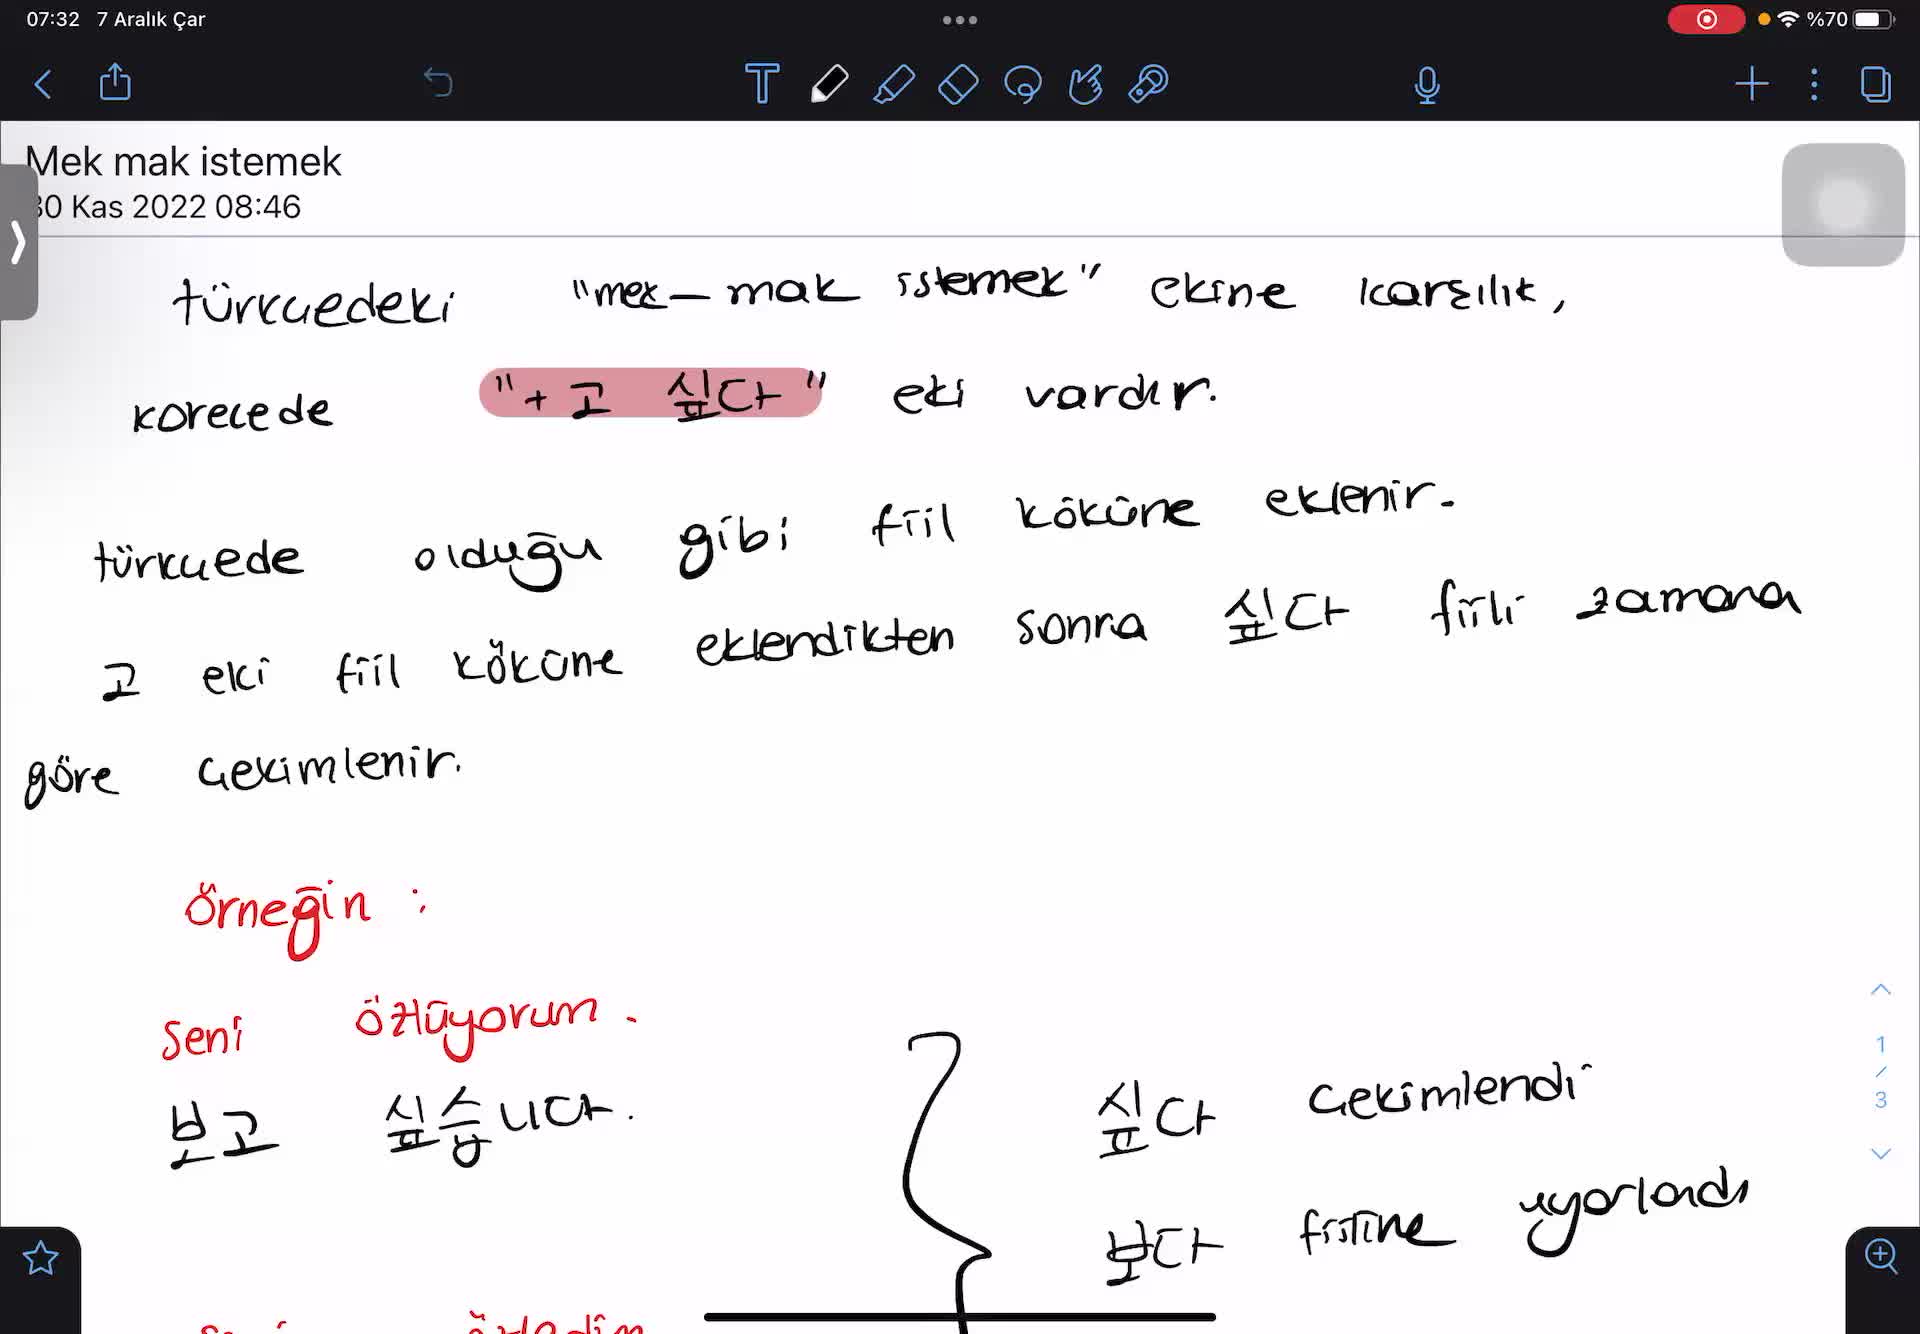 07:32 7 Aralık Çar
%70
Mek mak istemek
30 Kas 2022 08:46
türkçedeki "mek-mak istemek" ekine karşılık,
korecede "+고 싶다" eki vardır.
türkçede olduğu gibi fiil köküne eklenir.
고 eki fiil köküne eklendikten sonra 싶다 fiili zamana
göre çekimlenir.
Örneğin :
Seni özlüyorum.
보고 싶습니다.
싶다 çekimlendi
보다 fiiline uyarlandı
Seni özledim
1
/
3